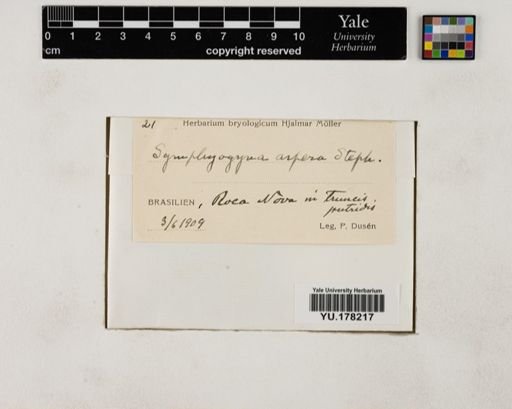 0 1 2 3 4 5 6 7 8 9 10
cm copyright reserved
Yale
University
Herbarium
21 Herbarium bryologicum Hjalmar Möller
Symphyogyna aspera Steph.
BRASILIEN, Roca Nova in truncis
putridis
3/6 1909 Leg. P. Dusén
Yale University Herbarium
YU.178217